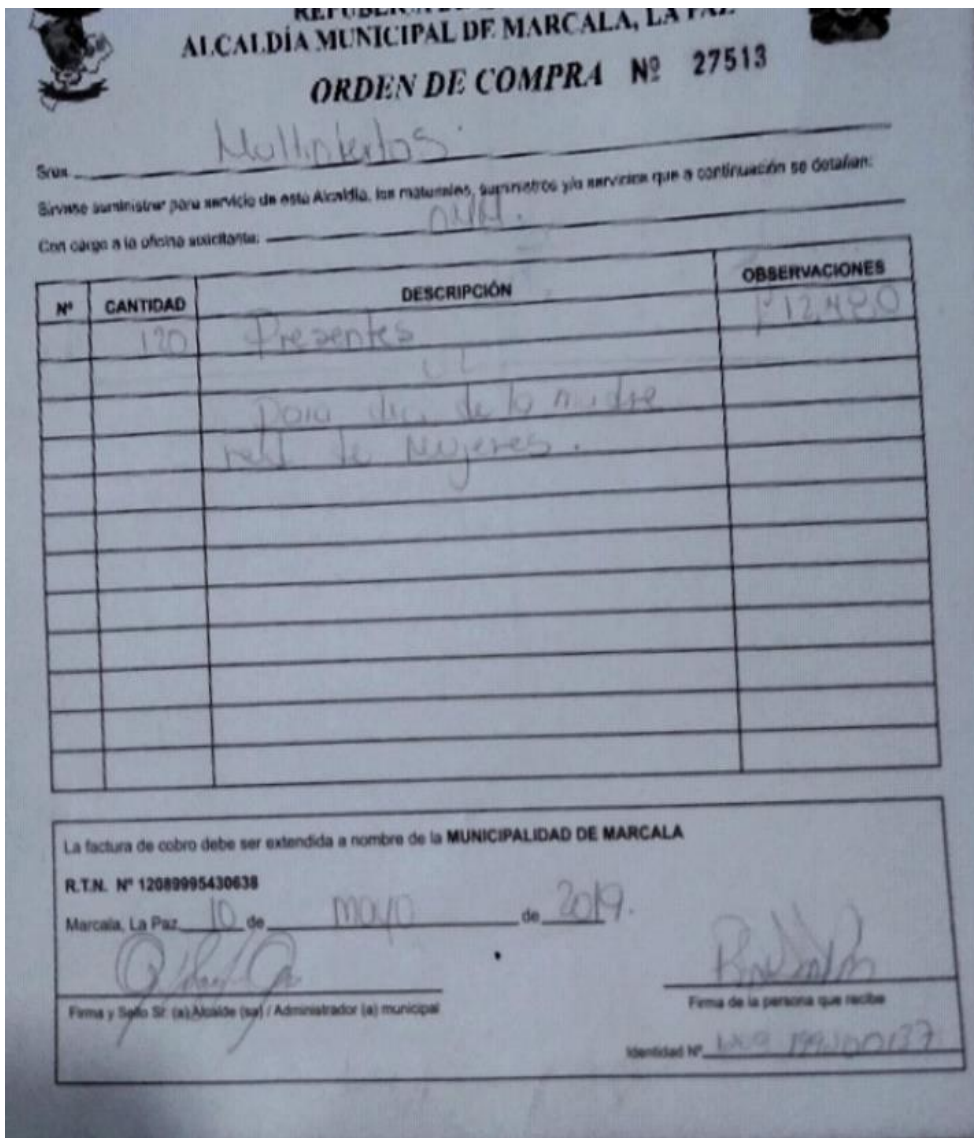 ALCALDÍA MUNICIPAL DE MARCALA, LA PAZ
ORDEN DE COMPRA Nº 27513
Sres.
Sirvase suministrar para servicio de esta Alcaldía, los materiales, suministros y/o servicios que a continuación se detallan:
Con cargo a la oficina solicitante:
Nº CANTIDAD DESCRIPCIÓN OBSERVACIONES
120 Presentes 12,480
para dia de la madre
de Mujeres.
La factura de cobro debe ser extendida a nombre de la MUNICIPALIDAD DE MARCALA
R.T.N. Nº 12089995430638
Marcala, La Paz 10 de mayo de 2019.
Firma y Sello Sr. (a) Alcalde (sa) / Administrador (a) municipal
Firma de la persona que recibe
Identidad Nº